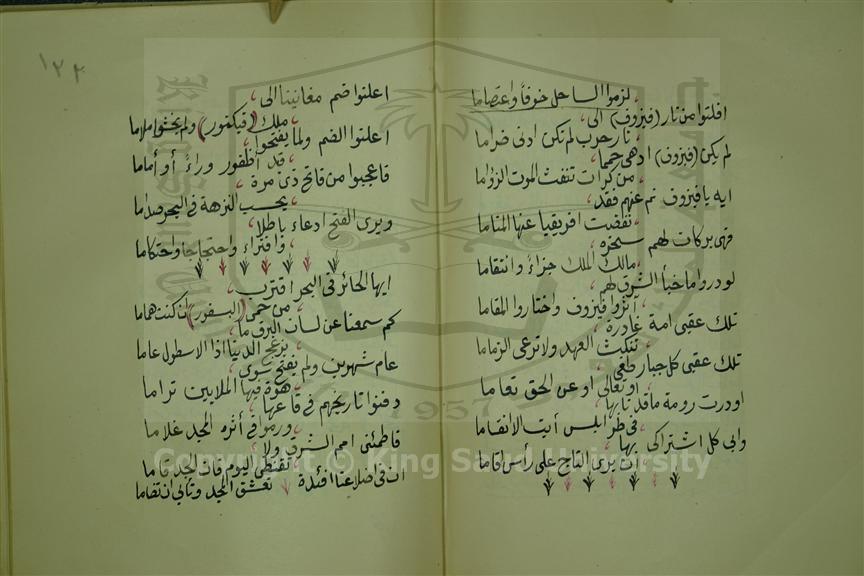 لزموا الساحل خوفاً واعتصاما
افلتوا من نار (فيزوف) الى
نار حرب لم تكن ادنى ضراما
لم يكن (فيزوف) ادهى حمما
من كرات تنفث الموت الزؤاما
ايه يا فيزوف نم عنهم فقد
نفضت افريقيا عنها المناما
فهى بركان لهم سخره
مالك الملك جزاءً وانتقاما
لو دروا ما خبأ الشرق لهم
آثروا فيزوف واختاروا المقاما
تلك عقبى امة غادرة
تنكث العهد ولا ترعى الزماما
تلك عقبى كل جبار طغى
او تعالى او عن الحق تعامى
او درت رومة ما قد نابها
فى طرابلس أبت الا انقساما
وابى كل اشتراكى بها
ان يرى التاج على رأس اقاما
اعلنوا ضم مغانينا الى
ملك (فيكتور) ولم يخشوا ملاما
اعلنوا الضم ولما يفتحوا
قد اظفور وراءً أو أماما
فاعجبوا من فاتح ذى مرة
يحسب النزهة فى البحر صداما
ويرى الفتح ادعاء باطلا
وافتراء واحتجاجا واحتكاما
ايها الحائر فى البحر اقترب
من حمى (البسفور) ان كنت هماما
كم سمعنا عن لسان البرق ما
يزعج الدنيا اذا الاسطول عاما
عام شهرين ولم يفتح سوى
هوة فيها الملايين ترامى
دفنوا تاريخهم فى قاعها
ورموا فى أثره المجد غلاما
فاطمئنى امم الشرق ولا
تقنطى اليوم فان الجد قاما
ان فى اضلاعنا افئدة تعشق المجد وتأبى ان تضاما
١٢٢
Copyright © King Saud University
1957